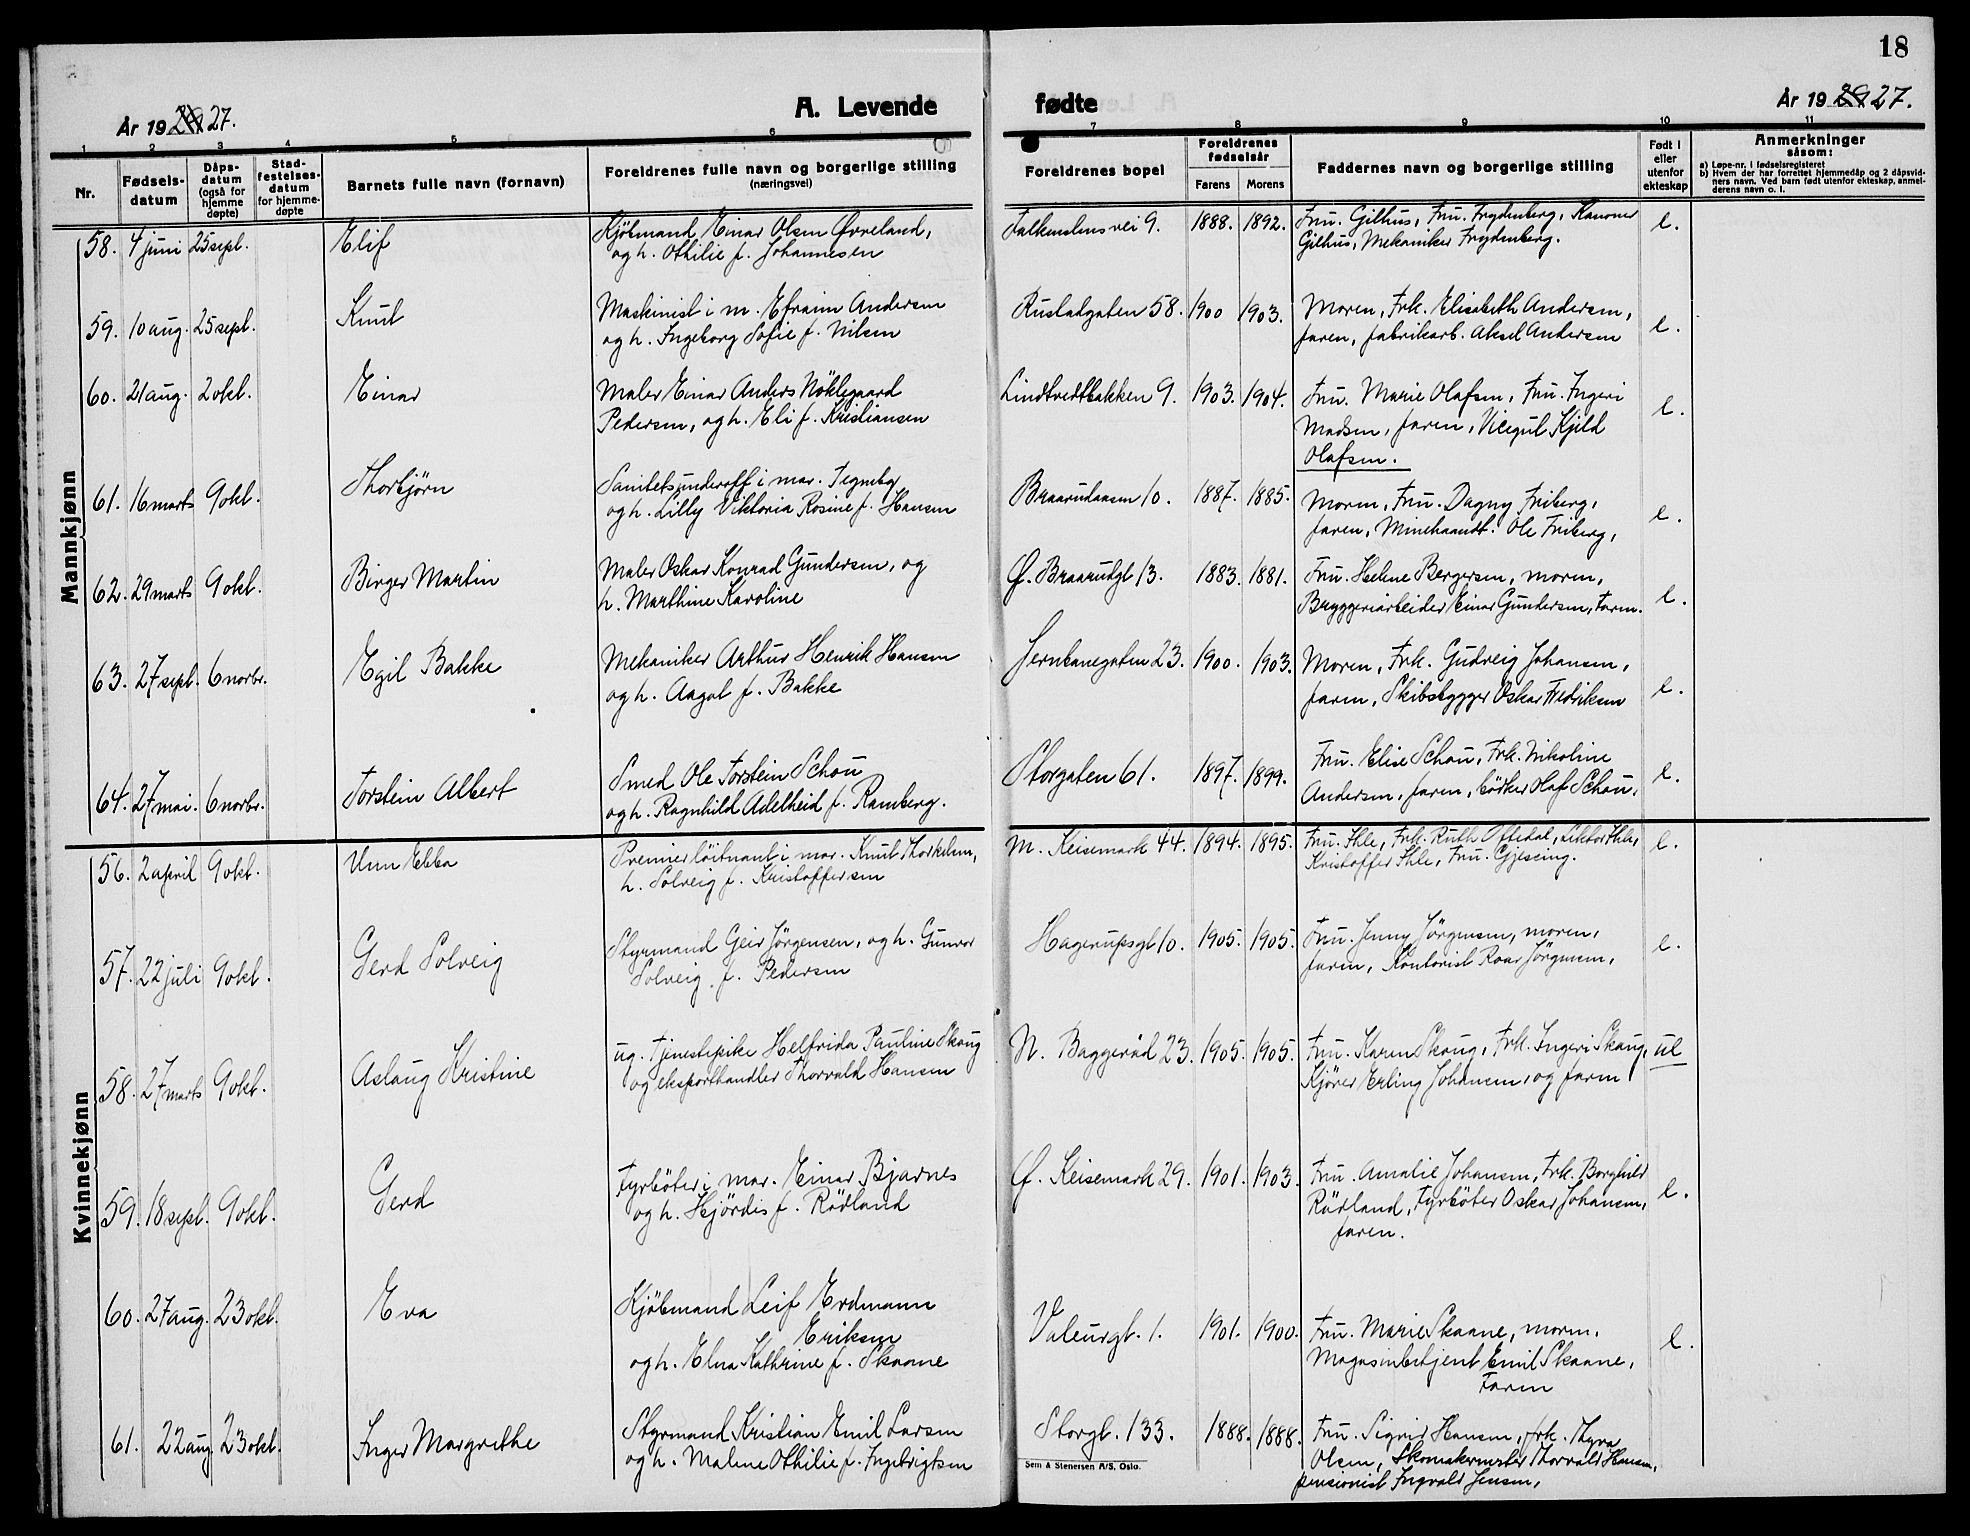 18
År 1927.
A. Levende fødte
År 1927.
1 2 3 4 5 6 7 8 9 10 11
Nr.
Fødsels-
datum
Dåps-
datum
(også for
hjemme
døpte)
Stad-
festelses-
datum
for hjemme-
døpte
Barnets fulle navn (fornavn)
Foreldrenes fulle navn og borgerlige stilling
(næringsvei)
Foreldrenes bopel
Foreldrenes
fødselsår
Farens Morens
Faddernes navn og borgerlige stilling
Født i
eller
utenfor
ekteskap
Anmerkninger
såsom:
a) Løpe-nr. i fødselsregisteret
b) Hvem der har forrettet hjemmedåp og 2 dåpsvid-
ners navn. Ved barn født utenfor ekteskap, anmel-
derens navn o. l.
Mannkjønn
58. 4 juni 25 sept. Elif Kjöbmand Einar Olsen Øvreland, Falkenstens vei 9. 1888. 1892. Fru. Gilhus, Fru. Frydenberg, Kanoner e.
og h. Othilie f. Johannesen Gilhus, Mekaniker Frydenberg.
59. 10 aug. 25 sept. Knut Maskinist i m. Efraim Andersen Rustadgaten 58. 1900 1903. Moren, Frk. Elisabeth Andersen, e.
og h. Ingeborg Sofie f. Nilsen faren, fabrikarb. Aksel Andersen
60. 21 aug. 2 okt. Einar Maler Einar Anders Nöklegaard Lindtvedtbakken 9. 1903. 1904. Fru. Marie Olafsen, Fru. Ingeri e.
Pedersen, og h. Eli f. Kristiansen Madsen, faren, Kjeld
Olafsen.
61. 16 marts 9 okt. Thorbjørn Sanitetsunderoff i mar. og h. Lilly Viktoria Rosine f. Hansen Braarudaasen 10. 1887. 1885. Moren, Fru. Dagny Friberg, e.
faren, Ole Friberg,
62. 29 marts 9 okt. Birger Martin Maler Oskar Konrad Gundersen, og Ø. Braarudgt 13. 1883. 1881. Fru. Helene Bergersen, moren, e.
h. Marthine Karoline Bryggeriarbeider Einar Gundersen, Faren.
63. 27 sept. 6 novbr. Egil Bakke Mekaniker Arthur Henrik Hansen Jernbanegaten 23. 1900. 1903. Moren, Frk. Gudveig Johansen, e.
og h. Aagot f. Bakke faren, Skibsbygger Oskar Fredriksen
64. 27 mai. 6 novbr. Torstein Albert Smed Ole Torstein Schou Storgaten 61. 1897. 1899. Fru. Elise Schou, Frk. Nikoline e.
og h. Ragnhild Adelheid f. Ramberg. Andersen, faren, bödker Olaf Schou,
Kvinnekjønn
56. 2 april 9 okt. Unn Ebba Premierlöitnant i mar. Knut Thorkelsen, M. Keisemark 44. 1894. 1895. Fru. Ihle, Frk. Ruth Oftedal, Ihle, e.
h. Solveig f. Kristoffersen Kristoffer Ihle, Fru. Gjessing.
57. 22 juli 9 okt. Gerd Solveig Styrmand Geir Jörgensen, og h. Gunvor Hagerupsgt 10. 1905. 1905. Fru. Jenny Jörgensen, moren, e.
Solveig, f. Pedersen faren, Kontorist Roar Jörgensen,
58. 27 marts 9 okt. Aslaug Kristine ug. Tjenestepike Helfrida Pauline Skoug N. Baggeröd 23. 1905. 1905. Fru. Karen Skoug, Frk. Ingeri Skoug, ul
og eksporthandler Thorvald Hansen Kjörer Erling Johansen, og faren
59. 18 sept. 9 okt. Gerd Fyrböter i mar. Einar Bjarnes Ø. Keisemark 29. 1901. 1903. Fru. Amalie Johansen, Frk. Borghild e.
og h. Hjördis f. Rödland Rödland, Fyrböter Oskar Johansen,
faren.
60. 27 aug. 23 okt. Eva Kjöbmand Leif Erdmann Valeurgt. 1. 1901. 1900. Fru. Marie Skaane, moren, e.
Eriksen
og h. Elna Kathrine f. Skaane Magasinbetjent Emil Skaane,
Faren
61. 22 aug. 23 okt. Inger Margrethe Styrmand Kristian Emil Larsen Storgt. 133. 1888. 1888. Fru. Sigrid Hansen, frk. Thyra
og h. Malene Othilie f. Ingebrigtsen Olsen, Skomakermester Thorvald Hansen,
pensionist Ingvald Jensen,
Sem & Stenersen A/S, Oslo.